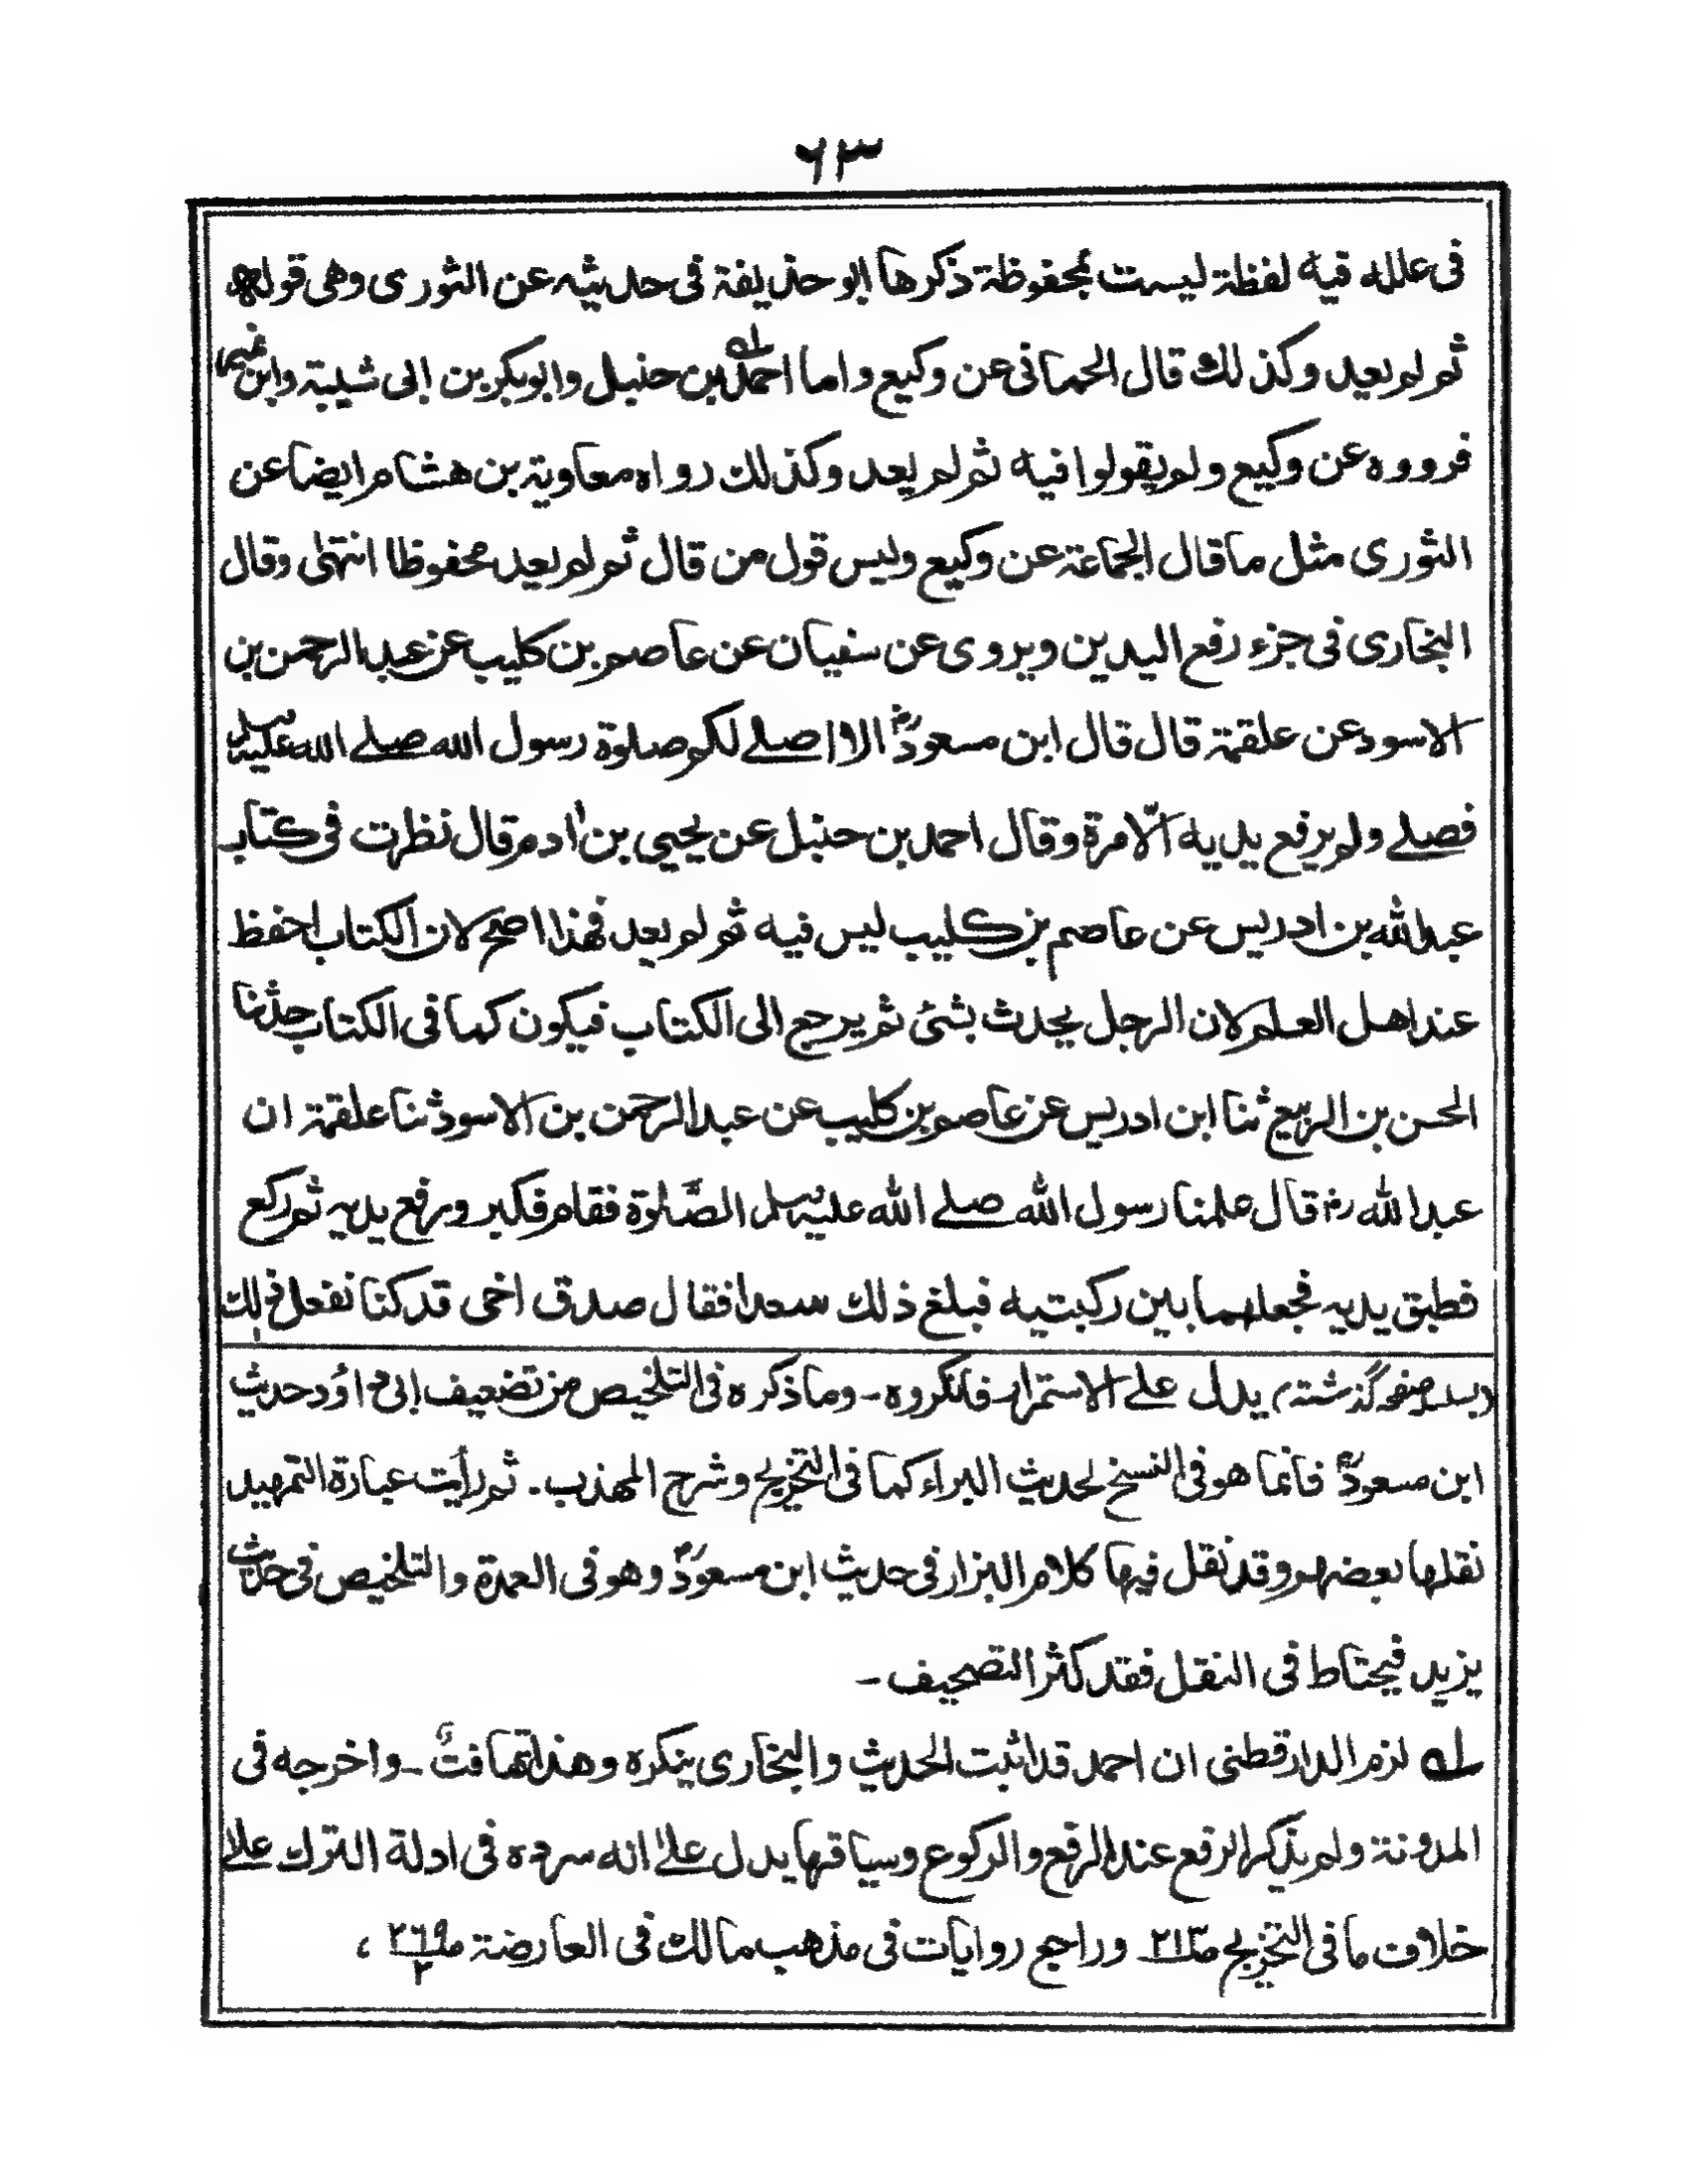 ٦٣
فی علله فیه لفظة لیست بمحفوظة ذکرها ابو حذیفة فی حدیثه عن الثوری وهی قوله
ثم لم یعد وکذلك قال الحمانی عن وکیع واما احمد له بن حنبل وابوبکر بن ابی شیبة وابن نمیر
فرووه عن وکیع ولم یقولوا فیه ثم لم یعد وکذلك رواه معاویة بن هشام ایضا عن
الثوری مثل ما قال الجماعة عن وکیع ولیس قول من قال ثم لم یعد محفوظا انتهٰی وقال
البخاری فی جزء رفع الیدین ویروی عن سفیان عن عاصم بن کلیب عن عبد الرحمن بن
الاسود عن علقمة قال قال ابن مسعودؓ الا اصلے لکم صلوة رسول الله صلے الله علیه وسلم
فصلے ولم یرفع یدیه الّا مرة وقال احمد بن حنبل عن یحیی بن اٰدم قال نظرت فی کتاب
عبد الله بن ادریس عن عاصم بن کلیب لیس فیه ثم لم یعد فهذا اصح لان الکتاب احفظ
عند اهل العلم لان الرجل یحدث بشئ ثم یرجع الی الکتاب فیکون کما فی الکتاب حدثنا
الحسن بن الربیع ثنا ابن ادریس عن عاصم بن کلیب عن عبد الرحمن بن الاسود ثنا علقمة ان
عبد الله رض قال علمنا رسول الله صلے الله علیه وسلم الصَّلٰوة فقام فکبر ورفع یدیه ثم رکع
فطبق یدیه فجعلهما بین رکبتیه فبلغ ذلك سعدا فقال صدق اخی قد کنا نفعل ذلك
(بسلسله صفحه گذشته) یدل علے الاستمرار فانکروه - وما ذکره فی التلخیص من تضعیف ابی داؤد حدیث
ابن مسعودؓ فانما هو فی النسخ لحدیث البراء کما فی التخریج وشرح المهذب - ثم رأیت عبارة التمهید
نقلها بعضهم وقد نقل فیها کلام البزار فی حدیث ابن مسعودؓ وهو فی العمدة والتلخیص فی حدیث
یزید فیحتاط فی النقل فقد کثر التصحیف -
له لزم الدارقطنی ان احمد قد اثبت الحدیث والبخاری ینکره وهذا تهافتٌ - واخرجه فی
المدونة ولم یذکر الرفع عند الرفع والرکوع وسیاقها یدل علےٰ انه سرده فی ادلة الترك علےٰ
خلاف ما فی التخریج ص٢١٣ وراجع روایات فی مذهب مالك فی العارضة ص٢٦٩/٢ ،